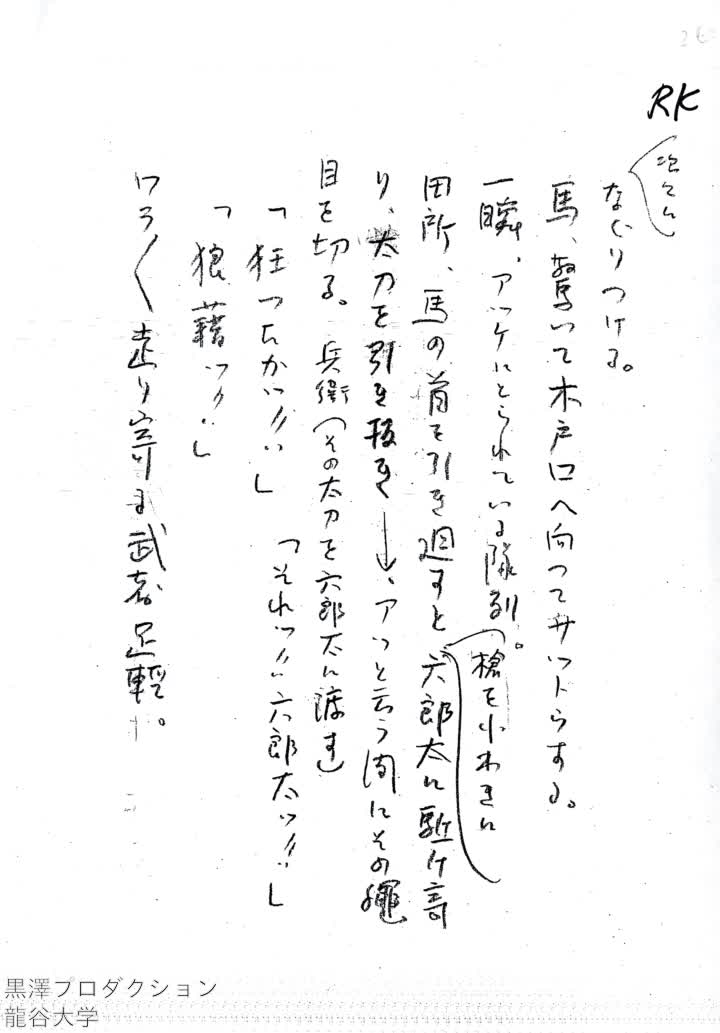 RK
なぐりつける。
馬、驚いて木戸口へ向つてサツトウする。
一瞬、アツケにとられている隊列。
槍を小わきに
田所、馬の首を引き廻すと六郎太に駈け寄
り、太刀を引き抜き、アツと云う間にその縄
目を切る。兵衛（その太刀を六郎太に渡す）
「狂つたかツ!!」
「それツ!!六郎太ツ!!」
「狼藉ツ!!」
ワラ〱走り寄る武者足軽。
黒澤プロダクション
龍谷大学